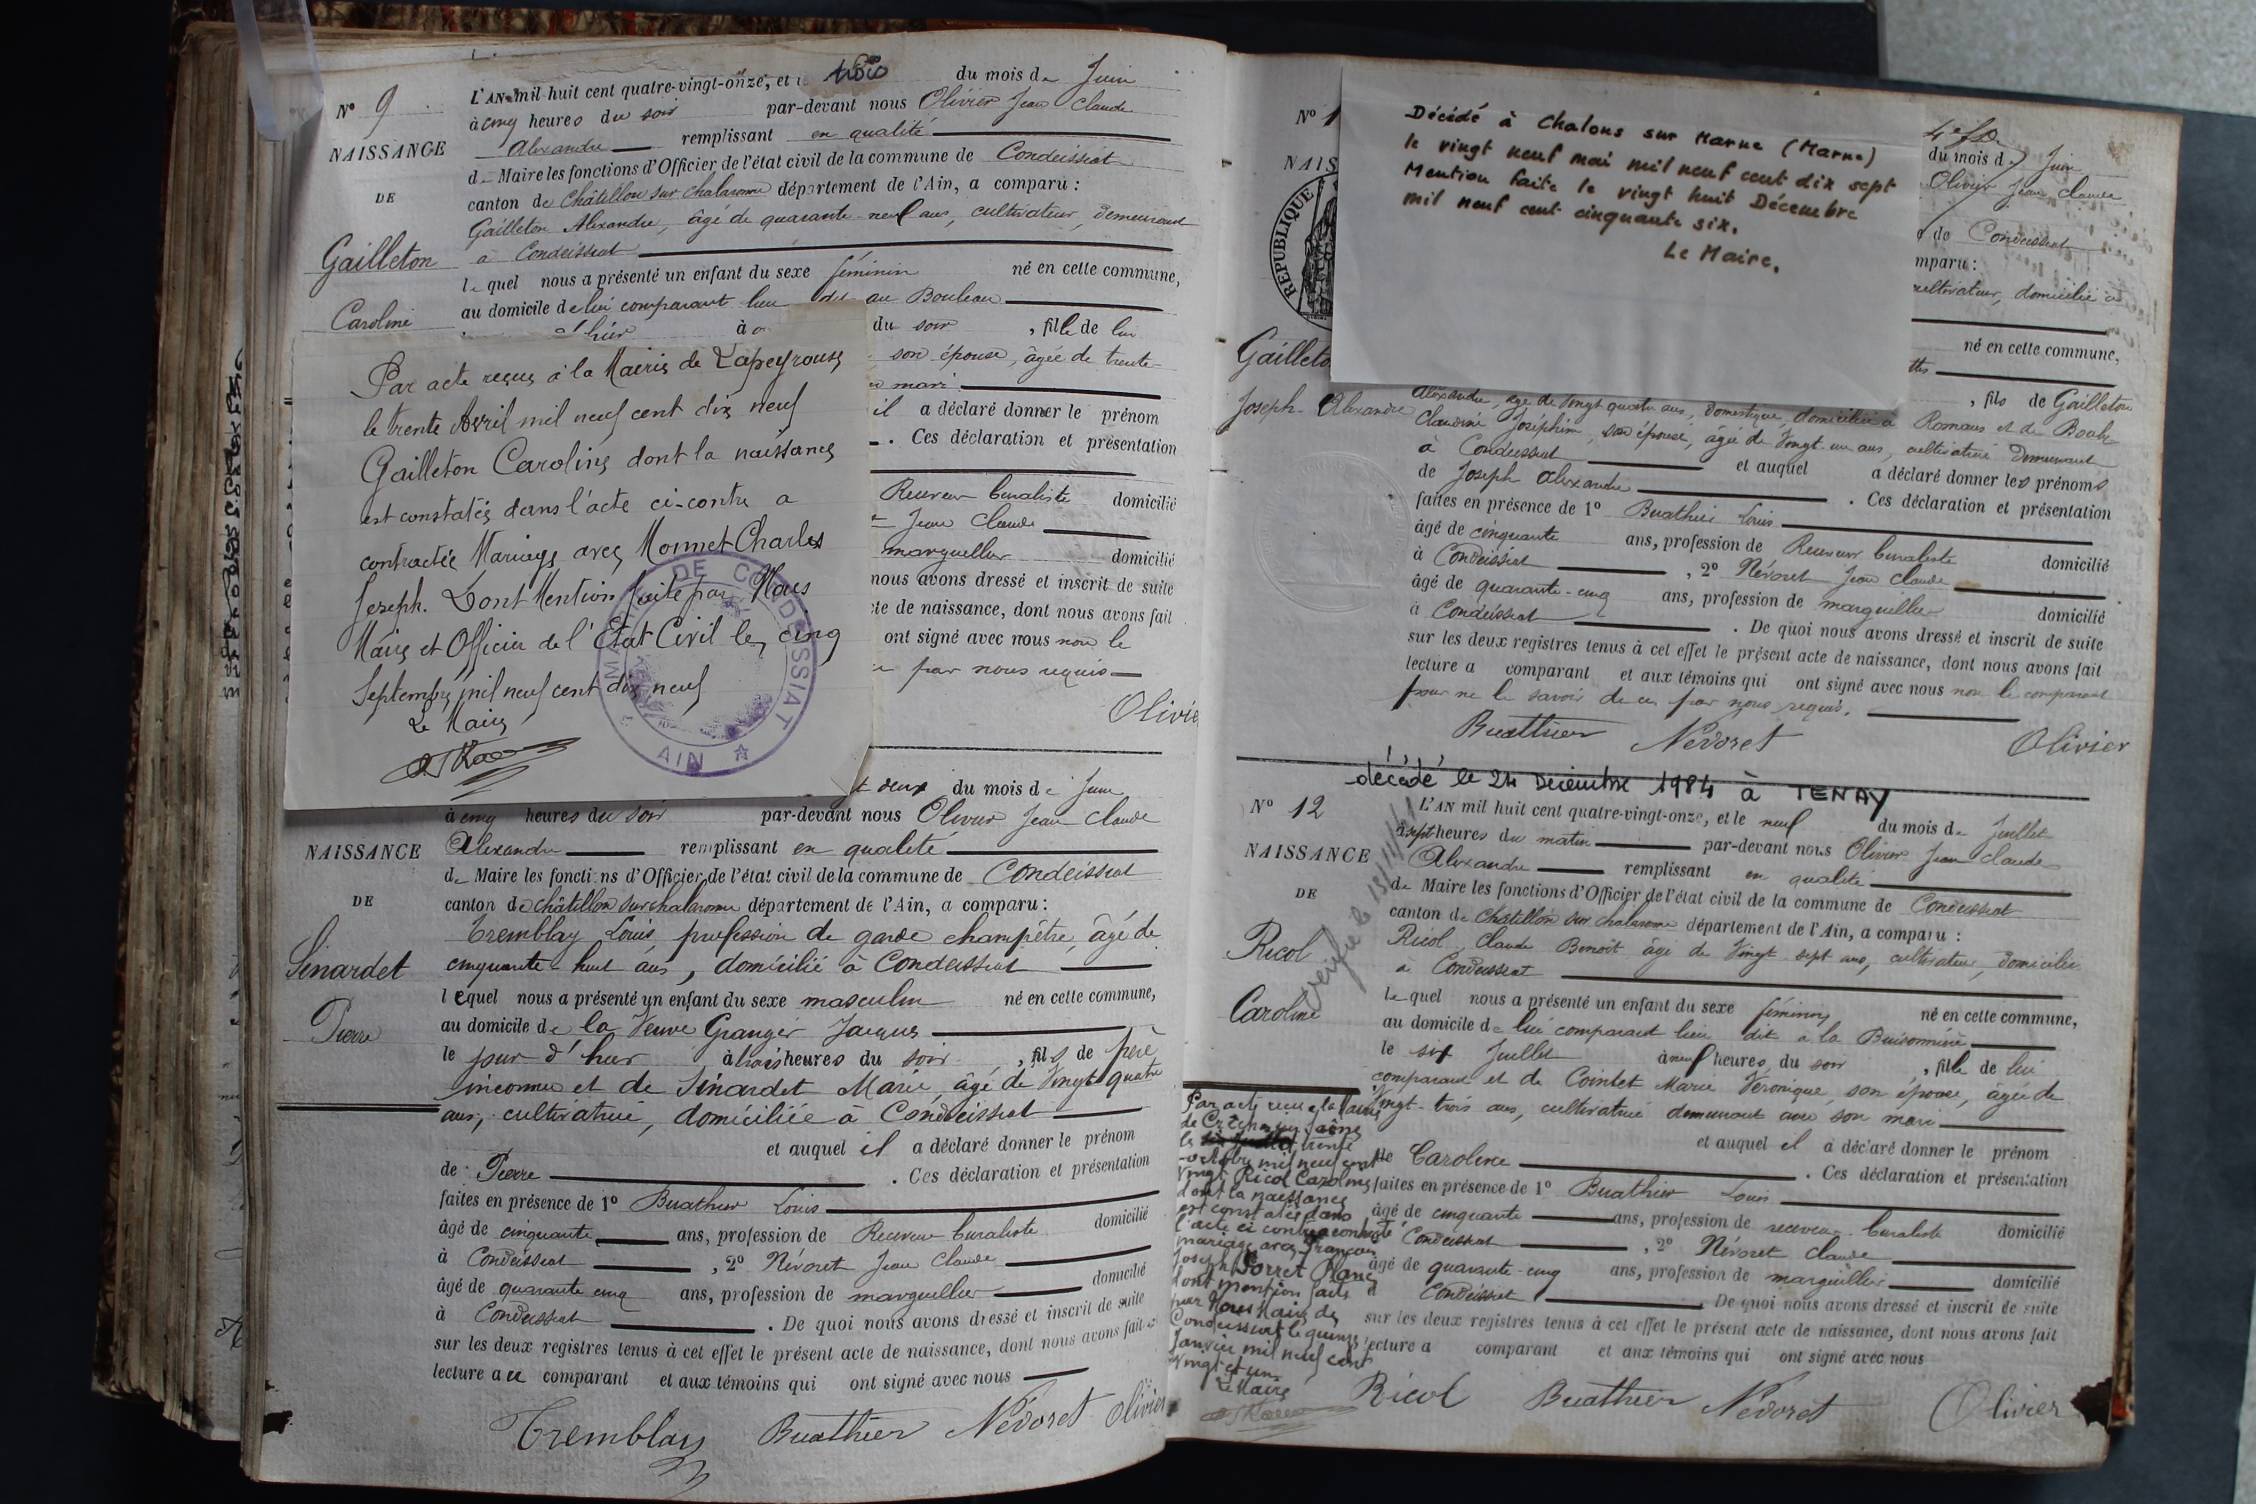 N° 9
NAISSANCE
DE
Gailleton
Caroline
L'AN mil huit cent quatre-vingt-onze, et trois du mois de Juin
à cinq heures du soir par-devant nous Olivier Jean Claude
Alexandre remplissant en qualité
de Maire les fonctions d'Officier de l'état civil de la commune de Condeissiat
canton de Châtillon sur Chalaronne département de l'Ain, a comparu :
Gailleton Alexandre, âgé de quarante-neuf ans, cultivateur, demeurant
à Condeissiat
le quel nous a présenté un enfant du sexe féminin né en cette commune,
au domicile de lui comparant lieu dit au Bouleau
d'hier à du soir, fille de lui
son épouse, âgée de trente-
mari
il a déclaré donner le prénom
. Ces déclaration et présentation
Receveur buraliste domicilié
Jean Claude
marguillier domicilié
nous avons dressé et inscrit de suite
te de naissance, dont nous avons fait
ont signé avec nous non le
par nous requis
Olivie
Par acte reçus à la Mairie de Lapeyrouse
le trente Avril mil neuf cent dix neuf
Gailleton Caroline dont la naissance
est constatée dans l'acte ci-contre a
contractée Mariage avec Monnet Charles
Joseph. Dont Mention faite par Nous
Maire et Officier de l'Etat Civil le cinq
Septembre mil neuf cent dix neuf
Le Maire
MAIRIE DE CONDEISSIAT
AIN
NAISSANCE
DE
Sinardet
Pierre
t deux du mois de Juin
à cinq heures du soir par-devant nous Olivier Jean Claude
Alexandre remplissant en qualité
de Maire les fonctions d'Officier de l'état civil de la commune de Condeissiat
canton de Châtillon sur Chalaronne département de l'Ain, a comparu :
Tremblay Louis profession de garde champêtre, âgé de
cinquante-huit ans, domicilié à Condeissiat
lequel nous a présenté un enfant du sexe masculin né en cette commune,
au domicile de la Veuve Granger Jacques
le jour d'hier à trois heures du soir, fils de père
inconnu et de Sinardet Marie âgé de Vingt quatre
ans, cultivatrice, domiciliée à Condeissiat
et auquel il a déclaré donner le prénom
de Pierre . Ces déclaration et présentation
faites en présence de 1° Buathier Louis
âgé de cinquante ans, profession de Receveur buraliste domicilié
à Condeissiat , 2° Névoret Jean Claude
âgé de quarante cinq ans, profession de marguillier domicilié
à Condeissiat . De quoi nous avons dressé et inscrit de suite
sur les deux registres tenus à cet effet le présent acte de naissance, dont nous avons fait
lecture au comparant et aux témoins qui ont signé avec nous
Tremblay Buathier Névoret Olivier
N° 1
NAIS
RÉPUBLIQUE
Gailleto
Joseph-Alexandre
Décédé à Chalons sur Marne (Marne)
le vingt neuf mai mil neuf cent dix sept
Mention faite le vingt huit Décembre
mil neuf cent cinquante six.
Le Maire.
du mois de Juin
Olivier Jean Claude
de Condeissiat
mparu :
cultivateur, domicilié à
né en cette commune,
, fils de Gailleton
Alexandre, âgé de Vingt quatre ans, domestique, domicilié à Romans et de Bouh
Claudine Joséphine, son épouse, âgée de Vingt-un ans, cultivatrice demeurant
à Condeissiat et auquel a déclaré donner les prénoms
de Joseph Alexandre . Ces déclaration et présentation
faites en présence de 1° Buathier Louis
âgé de cinquante ans, profession de Receveur buraliste domicilié
à Condeissiat , 2° Névoret Jean Claude
âgé de quarante-cinq ans, profession de marguillier domicilié
à Condeissiat . De quoi nous avons dressé et inscrit de suite
sur les deux registres tenus à cet effet le présent acte de naissance, dont nous avons fait
lecture a comparant et aux témoins qui ont signé avec nous non le comparant
pour ne le savoir de ce par nous requis.
Buathier Névoret Olivier
décédé le 24 Décembre 1984 à TENAY
N° 12
NAISSANCE
DE
Ricol
Caroline
L'AN mil huit cent quatre-vingt-onze, et le neuf du mois de Juillet
à sept heures du matin par-devant nous Olivier Jean Claude
Alexandre remplissant en qualité
de Maire les fonctions d'Officier de l'état civil de la commune de Condeissiat
canton de Châtillon sur Chalaronne département de l'Ain, a comparu :
Ricol Claude Benoît âgé de Vingt sept ans, cultivateur, domicilié
à Condeissiat
le quel nous a présenté un enfant du sexe féminin né en cette commune,
au domicile de lui comparant lieu dit à la Buissonnière
le six Juillet à neuf heures du soir, fille de lui
comparant et de Cointet Marie Véronique, son épouse, âgée de
Vingt-trois ans, cultivatrice demeurant avec son mari
et auquel il a déclaré donner le prénom
de Caroline . Ces déclaration et présentation
faites en présence de 1° Buathier Louis
âgé de cinquante ans, profession de receveur buraliste domicilié
à Condeissiat , 2° Névoret Claude
âgé de quarante-cinq ans, profession de marguillier domicilié
à Condeissiat . De quoi nous avons dressé et inscrit de suite
sur les deux registres tenus à cet effet le présent acte de naissance, dont nous avons fait
lecture a comparant et aux témoins qui ont signé avec nous
Ricol Buathier Névoret Olivier
Par acte reçu à la Mairie
de Crèches sur Saône
le trente
octobre mil neuf cent
vingt Ricol Caroline
dont la naissance
est constatée dans
l'acte ci contre a contracté
mariage avec François
Joseph
dont mention faite
par Nous Maire de
Condeissiat le quinze
Janvier mil neuf cent
vingt et un
Le Maire